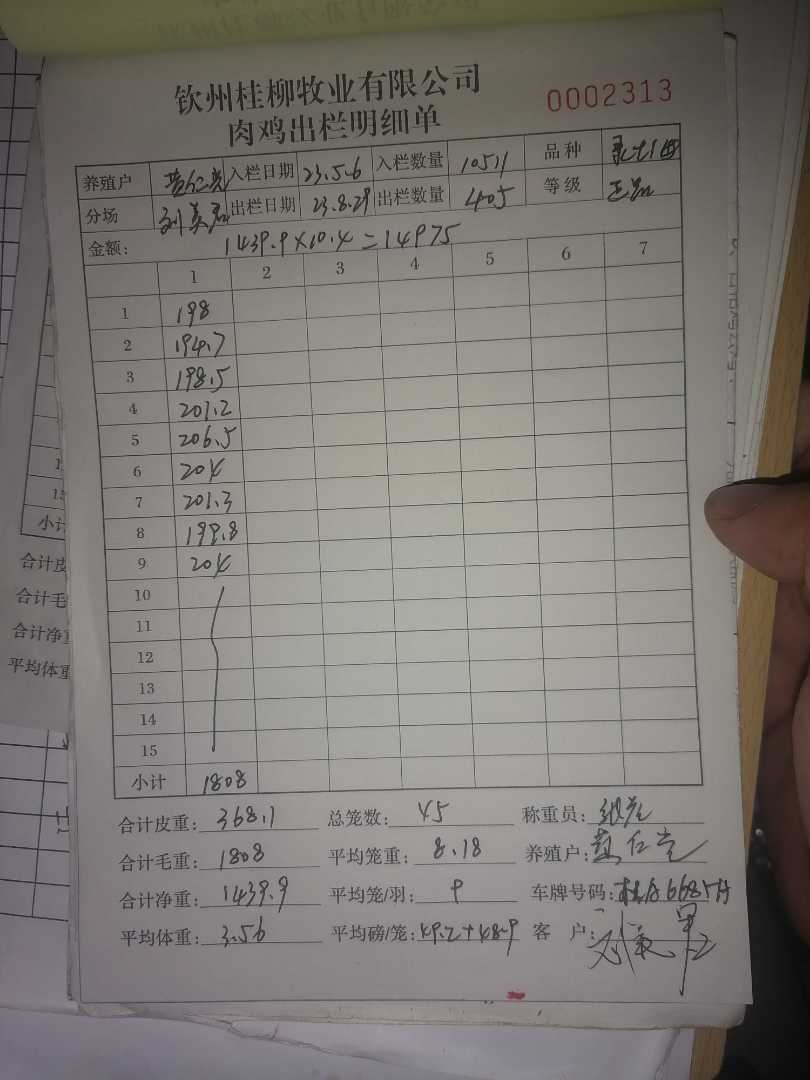 钦州桂柳牧业有限公司
0002313
肉鸡出栏明细单
养殖户 入栏日期 23.5.6 入栏数量 10511 品种
分场 刘英 出栏日期 23.8.29 出栏数量 405 等级
金额: 1439.9×10.4=14975
1 2 3 4 5 6 7
1 198
2 194.7
3 198.5
4 201.2
5 206.5
6 204
7 201.3
8 199.8
9 204
10
11
12
13
14
15
小计 1808
合计皮重: 368.1 总笼数: 45 称重员:
合计毛重: 1808 平均笼重: 8.18 养殖户:
合计净重: 1439.9 平均笼/羽: 9 车牌号码:
平均体重: 3.56 平均磅/笼: 49.2+48.9 客 户:
小计
合计皮
合计毛
合计净重
平均体重